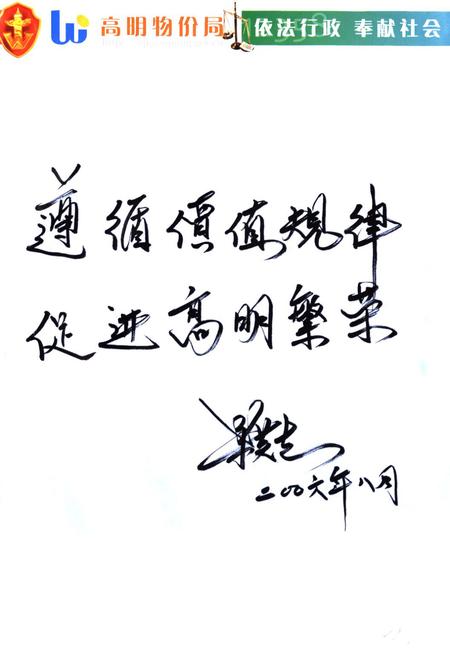 高明物价局 依法行政 奉献社会
遵循價值规律
促进高明繁荣
二〇〇六年八月